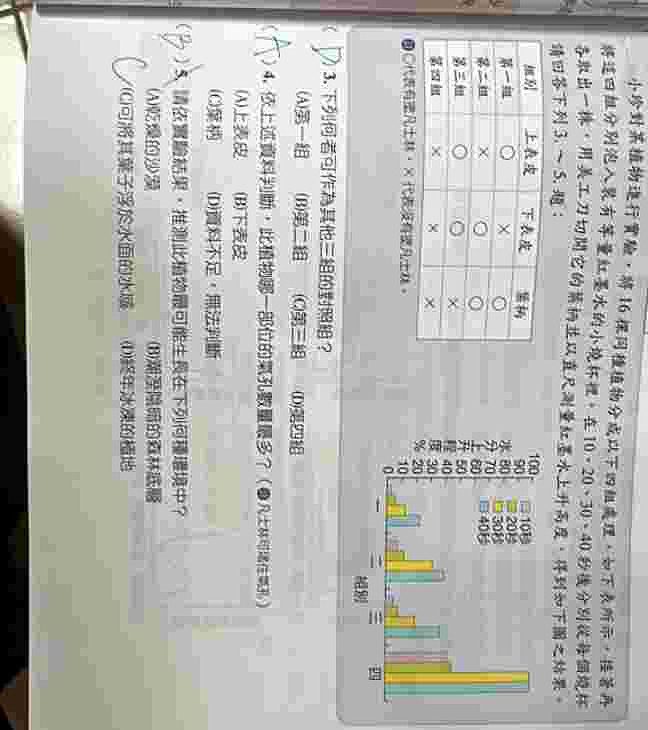 小玲對某植物進行實驗，將16棵同種植物分成以下四組處理，如下表所示，接著再
將這四組分別包入裝有等量紅墨水的小燒杯裡，在10、20、30、40秒後分別從每個燒杯
各取出一棵，用美工刀切開它的葉柄並以直尺測量紅墨水上升高度，得到如下圖之結果。
請回答下列3.～5.題：
組別 上表皮 下表皮 葉柄
第一組 ○ × ○
第二組 × ○ ○
第三組 ○ ○ ×
第四組 × × ×
○代表有塗凡士林，×代表沒有塗凡士林。
水分上升程度%
100
90
80
70
60
50
40
30
20
10
0
10秒
20秒
30秒
40秒
一 二 三 四
組別
(D) 3. 下列何者可作為其他三組的對照組？
(A)第一組 (B)第二組 (C)第三組 (D)第四組
(A) 4. 依上述資料判斷，此植物哪一部位的氣孔數量最多？(凡士林可堵住氣孔)
(A)上表皮 (B)下表皮
(C)葉柄 (D)資料不足，無法判斷
(B) 5. 請依實驗結果，推測此植物最可能生長在下列何種環境中？
(A)乾燥的沙漠 (B)潮溼陰暗的森林底層
(C)可將其葉子浮於水面的水域 (D)終年冰凍的極地